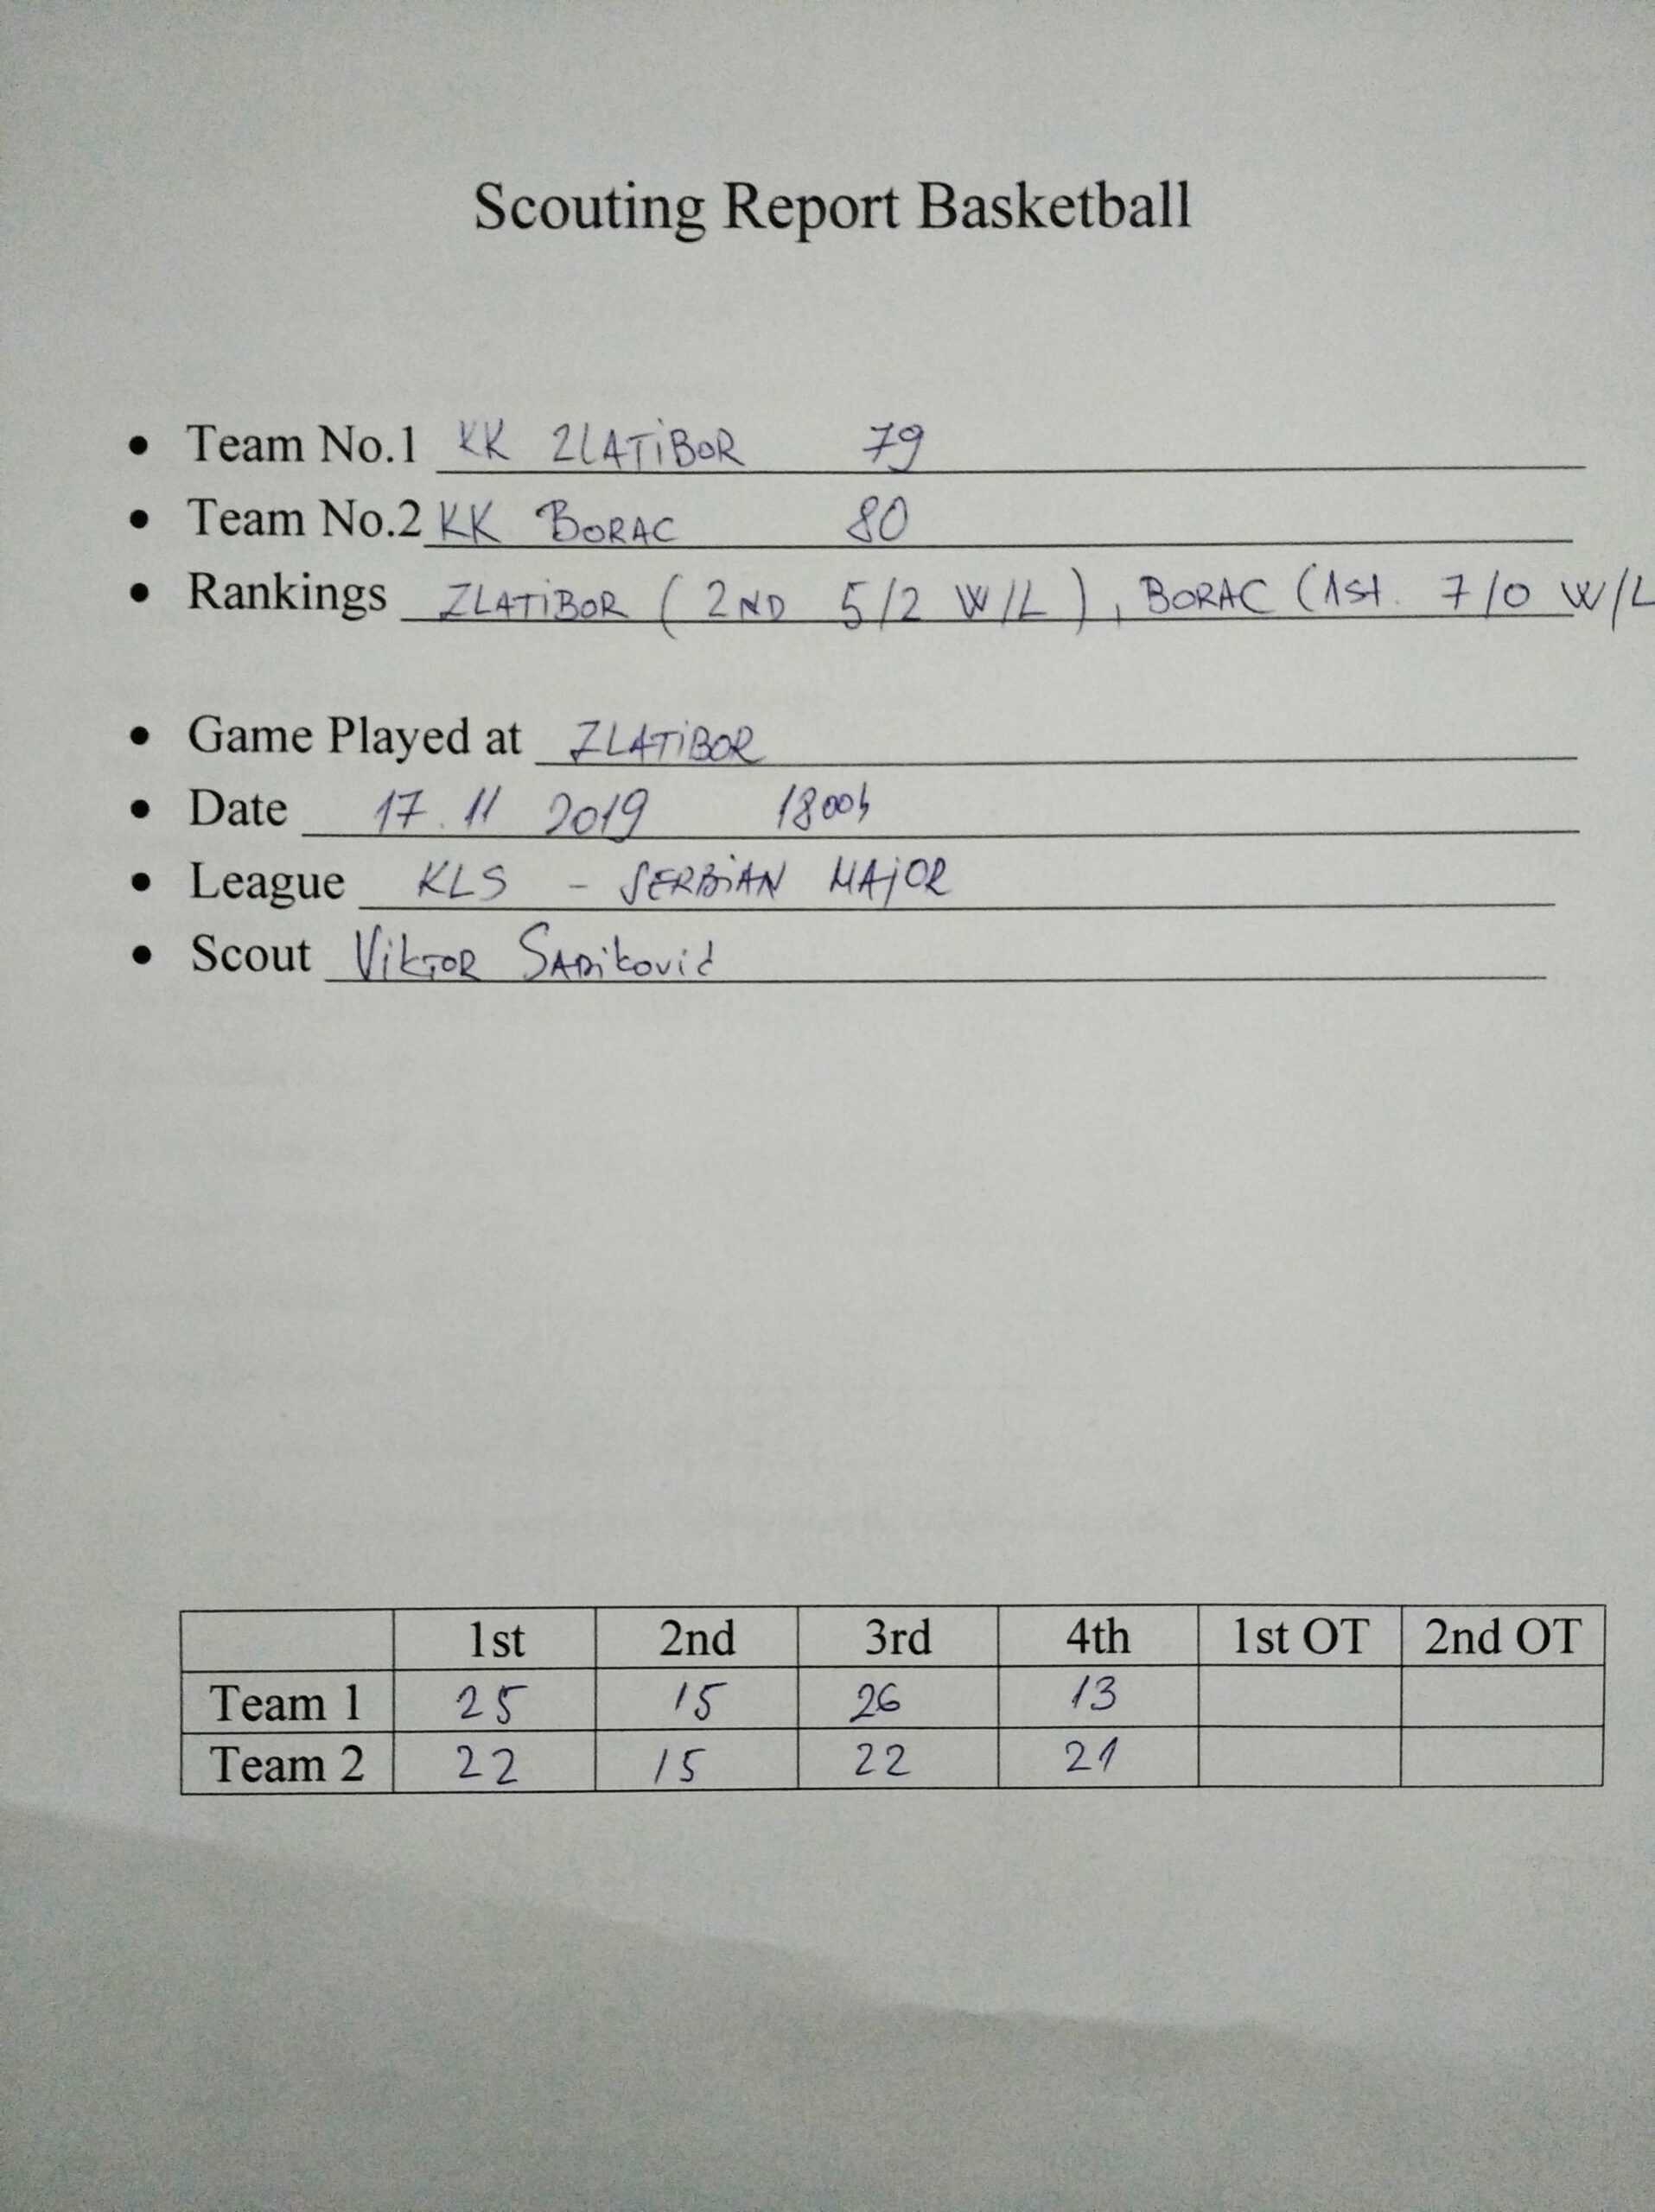 Scouting Report Basketball
• Team No.1 KK ZLATiBOR 79
• Team No.2 KK BORAC 80
• Rankings ZLATiBOR ( 2ND 5/2 W/L ) , BORAC (1st. 7/0 W/L
• Game Played at ZLATiBOR
• Date 17. 11 2019 18 00h
• League KLS - SERBiAN MAjOR
• Scout ViKTOR SADiković
1st 2nd 3rd 4th 1st OT 2nd OT
Team 1 25 15 26 13
Team 2 22 15 22 21